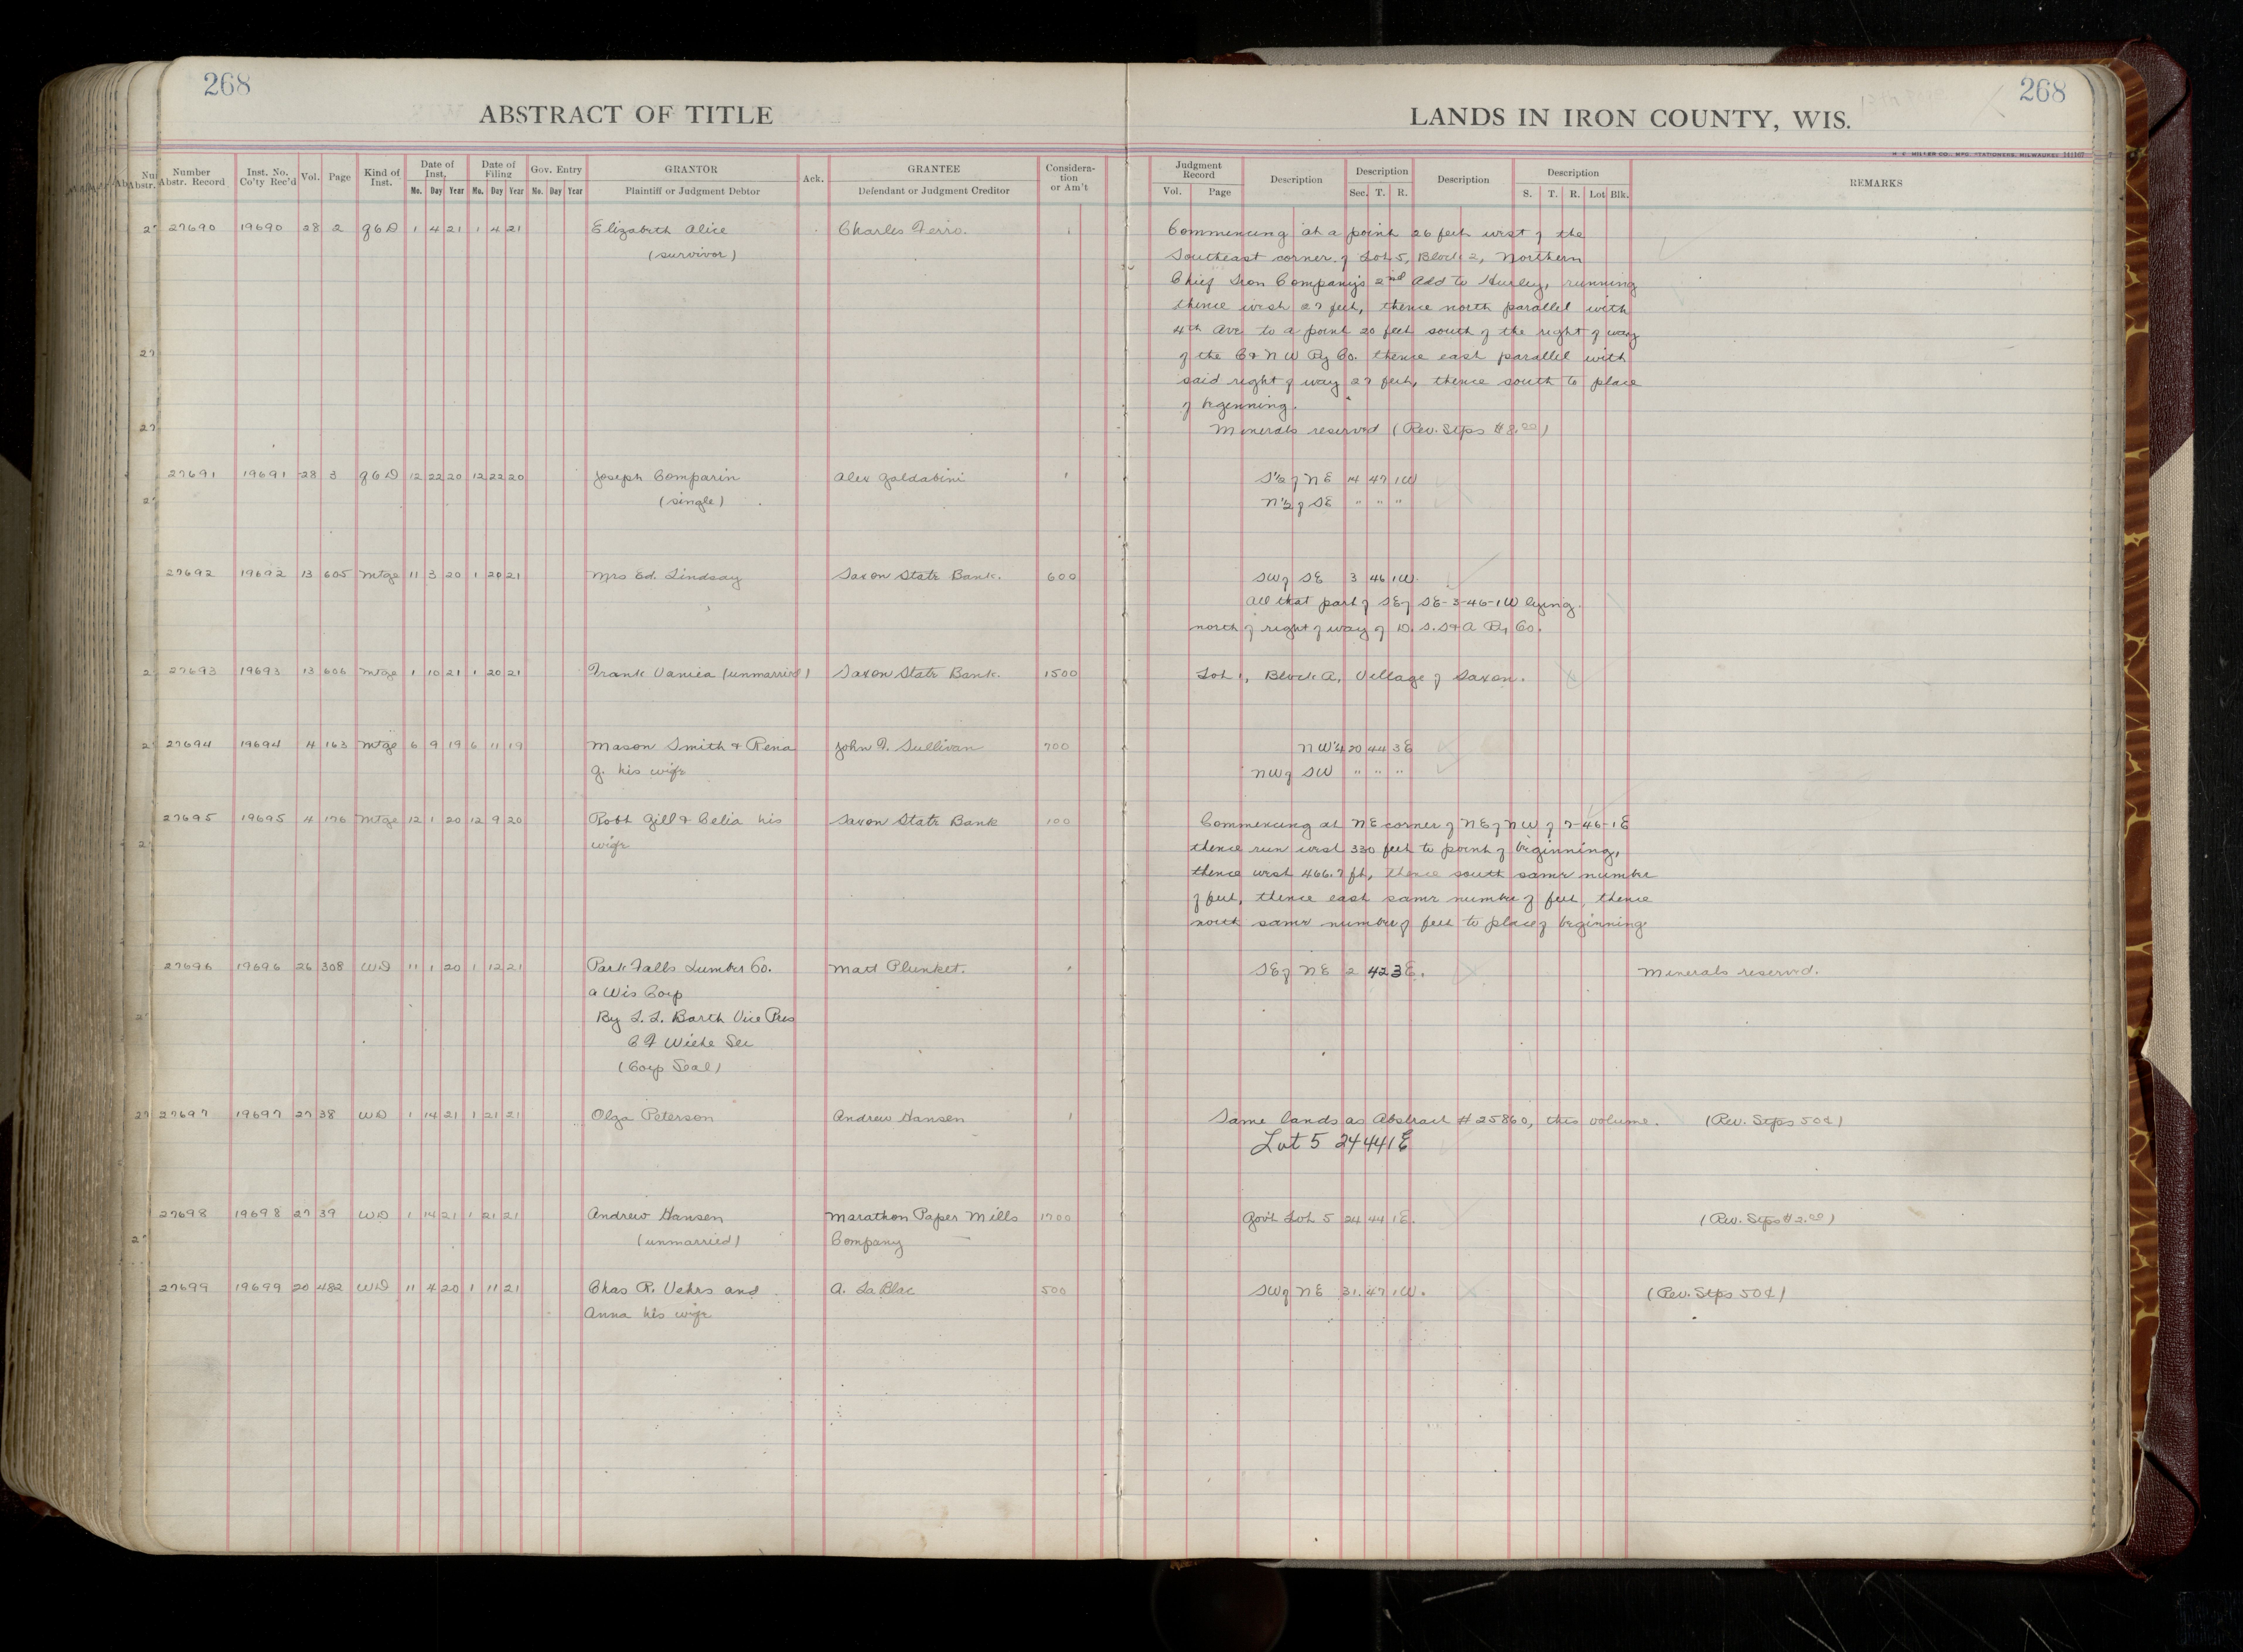 268
268
ABSTRACT OF TITLE
LANDS IN IRON COUNTY, WIS.
H. C. MILLER CO., MFG. STATIONERS, MILWAUKEE 141167
Number Abstr. Record Inst. No. Co'ty Rec'd Vol. Page Kind of Inst. Date of Inst. Date of Filing Gov. Entry GRANTOR Ack. GRANTEE Considera-tion or Am't Judgment Record Description Description Description Description REMARKS
Mo. Day Year Mo. Day Year Mo. Day Year Plaintiff or Judgment Debtor Defendant or Judgment Creditor Vol. Page Sec. T. R. S. T. R. Lot Blk.
27690 19690 28 2 QCD 1 4 21 1 4 21 Elizabeth Alice Charles Ferro. 1 Commencing at a point 26 feet west of the
(survivor) Southeast corner of Lot 5, Block 2, Northern
Chief Iron Company's 2nd Add to Hurley, running
thence west 27 feet, thence north parallel with
4th Ave to a point 20 feet south of the right of way
of the C & N W Ry Co. thence east parallel with
said right of way 27 feet, thence south to place
of beginning.
Minerals reserved (Rev. Stps $8.00)
27691 19691 28 3 QCD 12 22 20 12 22 20 Joseph Comparin Alex Galdabini 1 S½ of NE 14 47 1W
(single) N½ of SE " " "
27692 19692 13 605 Mtge 11 3 20 1 20 21 Mrs Ed. Lindsay Saxon State Bank. 600 SW of SE 3 46 1W.
All that part of SE of SE-3-46-1W lying
north of right of way of D. S. S & A Ry Co.
27693 19693 13 606 Mtge 1 10 21 1 20 21 Frank Vanica (unmarried) Saxon State Bank. 1500 Lot 1, Block A, Village of Saxon.
27694 19694 4 163 Mtge 6 9 19 6 11 19 Mason Smith & Rena John F. Sullivan 700 NW¼ 20 44 3E
G. his wife NW of SW " " "
27695 19695 4 176 Mtge 12 1 20 12 9 20 Robt Gill & Celia his Saxon State Bank 100 Commencing at NE corner of NE of NW of 7-46-1E
wife thence run west 330 feet to point of beginning,
thence west 466.7 ft, thence south same number
of feet, thence east same number of feet, thence
north same number of feet to place of beginning
27696 19696 26 308 WD 11 1 20 1 12 21 Park Falls Lumber Co. Matt Plunket. 1 SE of NE 2 42 3E. Minerals reserved.
a Wis Corp
By L. L. Barth Vice Pres
C F Wiehe Sec
(Corp Seal)
27697 19697 27 38 WD 1 14 21 1 21 21 Olga Peterson Andrew Hansen 1 Same lands as Abstract #25860, this volume. (Rev. Stps 50¢)
Lot 5 24 44 1E
27698 19698 27 39 WD 1 14 21 1 21 21 Andrew Hansen Marathon Paper Mills 1700 Gov't Lot 5 24 44 1E. (Rev. Stps $2.00)
(unmarried) Company
27699 19699 20 482 WD 11 4 20 1 11 21 Chas R. Vehrs and A. La Blac 500 SW of NE 31. 47 1W. (Rev. Stps 50¢)
Anna his wife